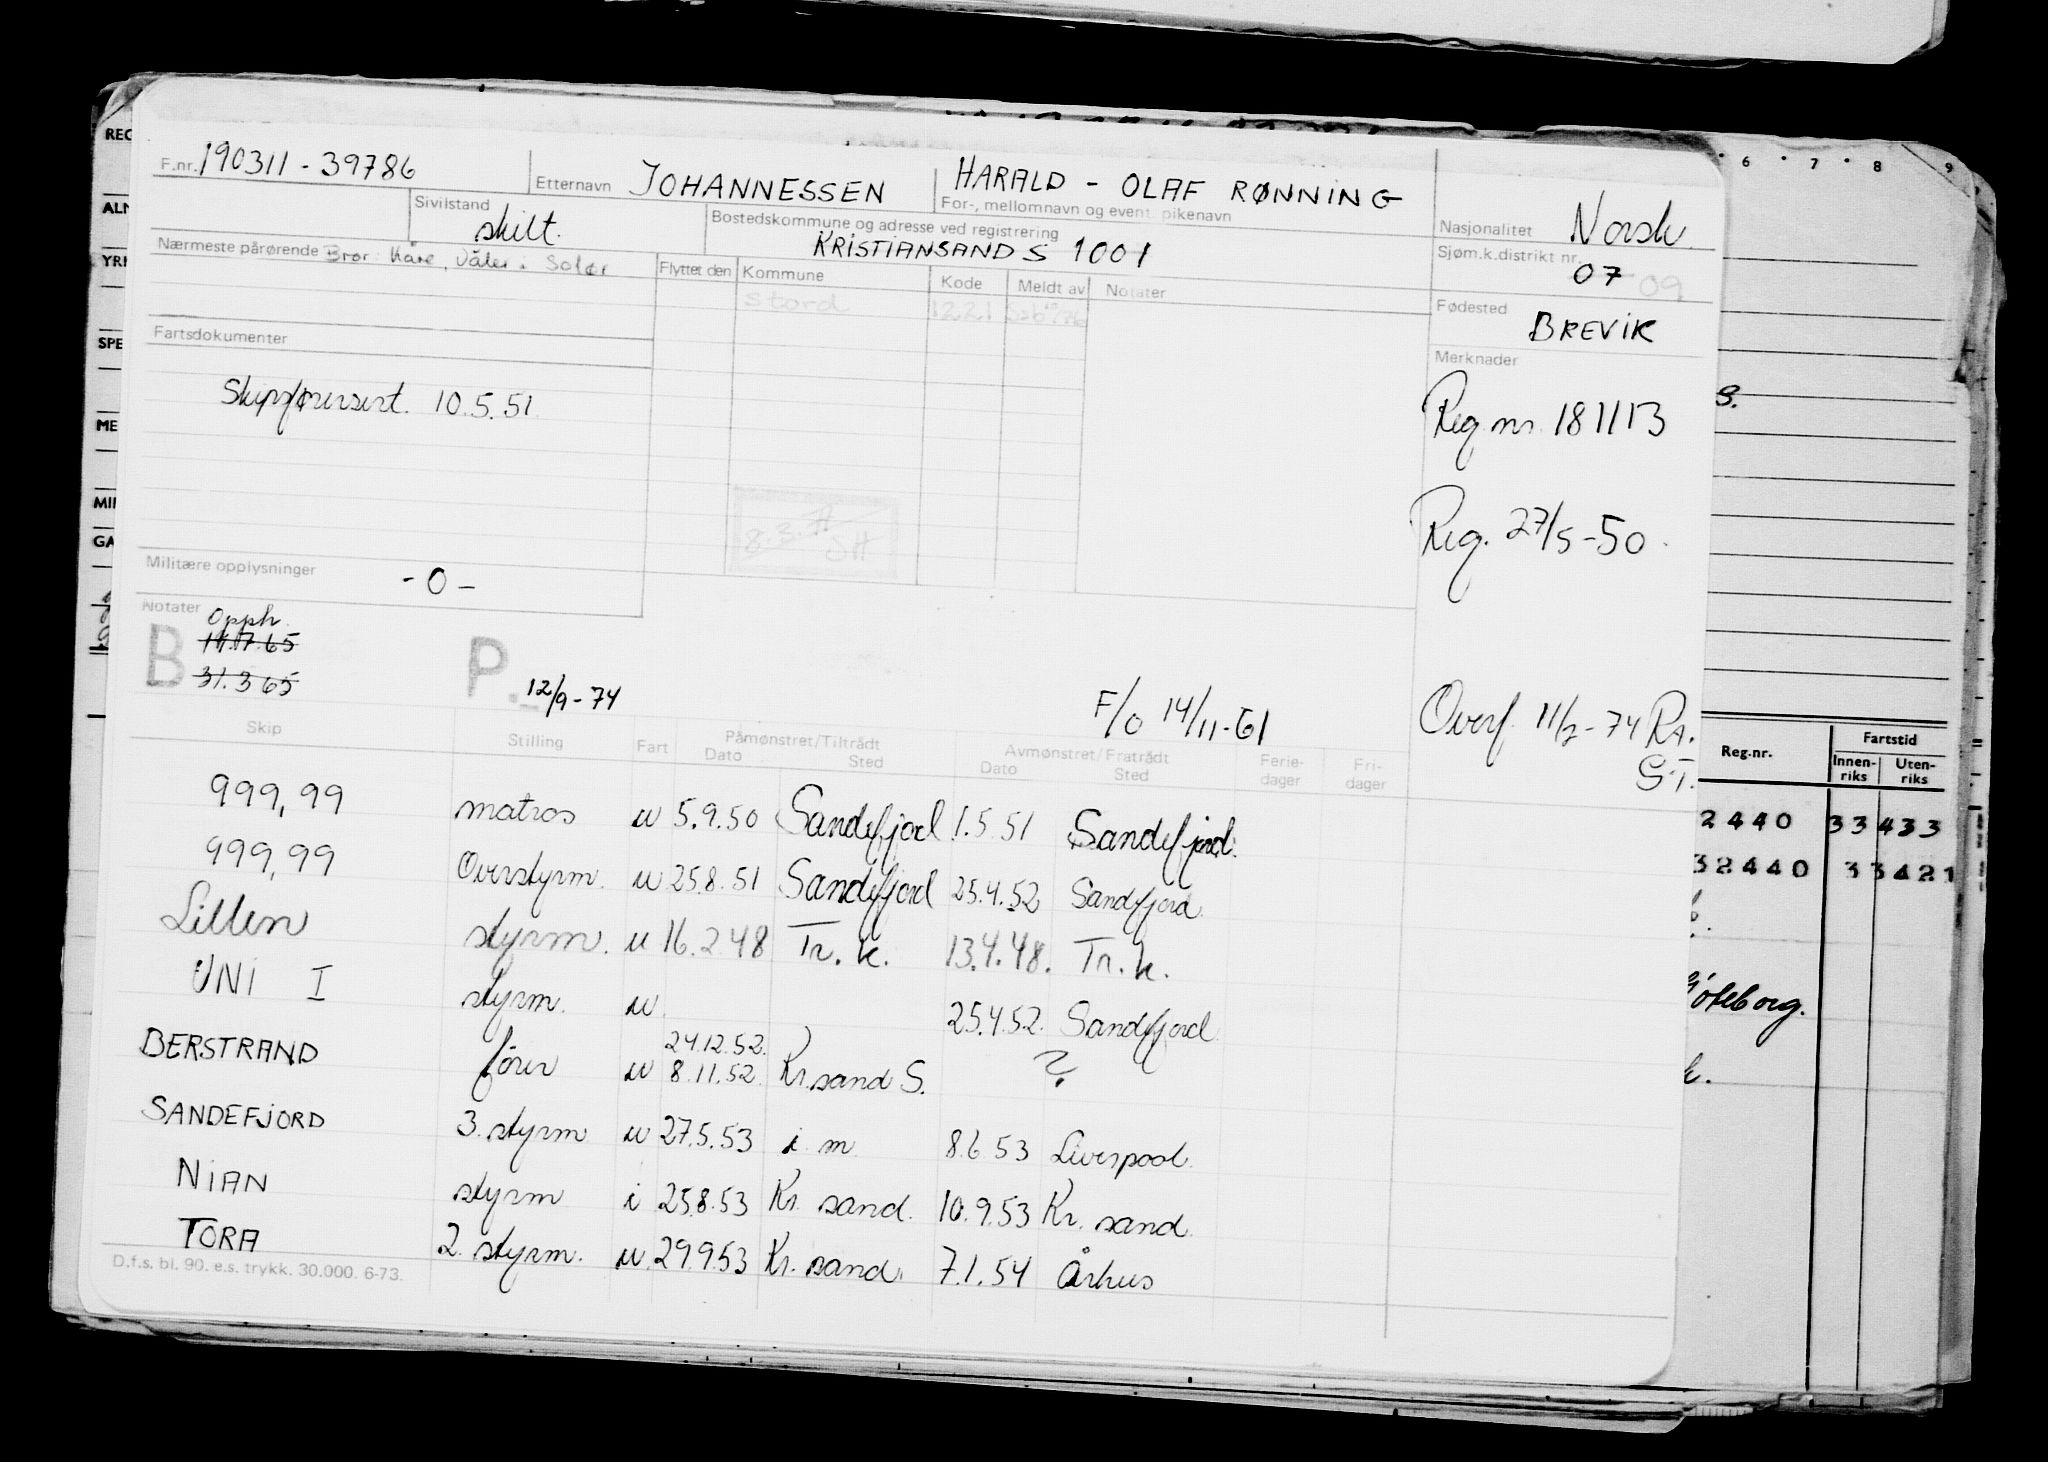 F.nr. 190311 - 39786 Etternavn JOHANNESSEN HARALD - OLAF RØNNING
For-, mellomnavn og event. pikenavn
Nasjonalitet Norsk.
Sivilstand skilt.
Bostedskommune og adresse ved registrering
KRISTIANSAND S 1001
Sjøm.k.distrikt nr.
07 09
Nærmeste pårørende Bror: Kåre, Våler i Solør
Flyttet den Kommune Kode Meldt av Notater
Stord 1221
Fødested
BREVIK
Fartsdokumenter
Merknader
Skipsførersert. 10.5.51
Reg nr. 181113
Reg. 27/5-50.
8.3.
SH
Militære opplysninger - 0 -
Notater Opph.
B 14.7.65
31.3 65
P. 12/9-74
F/O 14/11-61
Overf. 11/2-74 RA.
S.T.
Skip Stilling Fart Påmønstret/Tiltrådt Avmønstret/Fratrådt Ferie- Fri-
Dato Sted Dato Sted dager dager
999,99 matros u 5.9.50 Sandefjord 1.5.51 Sandefjord.
999,99 Overstyrm. u 25.8.51 Sandefjord 25.4.52 Sandefjord.
Lillen styrm. u 16.2.48 Tr.k. 13.4.48. Tr.k.
UNI I styrm. u. 25.4.52. Sandefjord
24.12.52.
BERSTRAND fører u 8.11.52. Kr.sand S. ?
SANDEFJORD 3. styrm u 27.5.53 i. m. 8.6.53 Liverpool.
NIAN styrm i 25.8.53 Kr. sand. 10.9.53 Kr. sand.
TORA 2. styrm. u. 29.9.53 Kr. sand. 7.1.54 Århus
D.f.s. bl. 90. e.s. trykk. 30.000. 6-73.
REG
ALM
YRK
SPE
ME
MIL
GA
6 7 8 9
S.
Reg.nr. Fartstid
Innen-riks Uten-riks
2440 33433
32440 33421
Göteborg.
k.